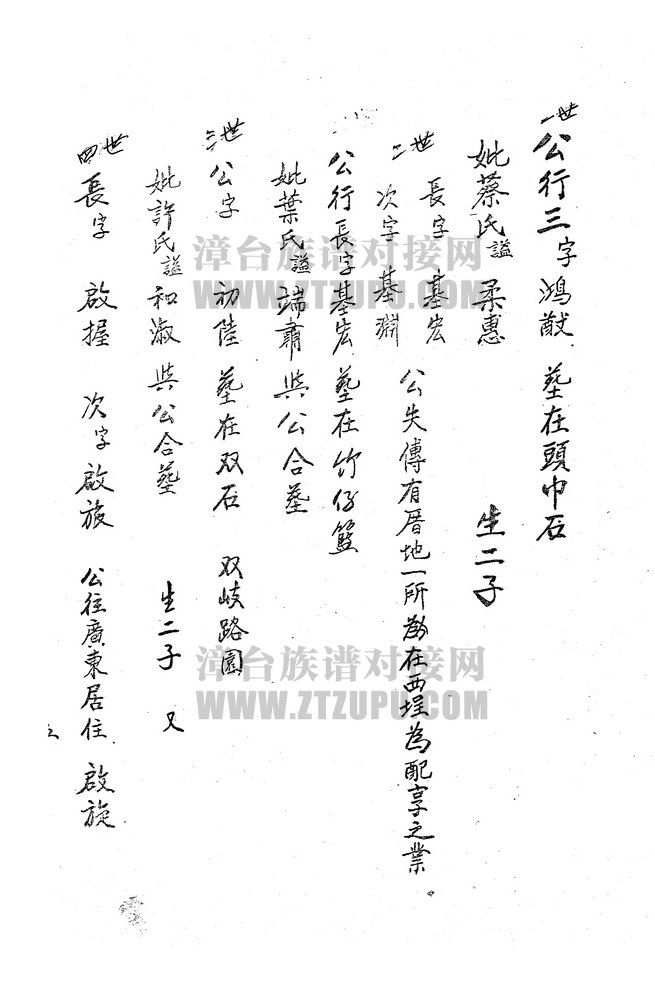 一世 公行三 字鴻猷 墓在頭巾石
妣蔡氏諡 柔惠 生二子
二世 長字 基宏
次字 基淵 公失傳有厝地一所 在西埕為配享之業
公行長字基宏 墓在竹仔籃
妣葉氏諡端肅 與公合墓
三世 公字 初陞 墓在双石 双岐路園
妣許氏諡和淑 與公合墓 生二子 又
四世 長字 啟握 次字啟旋 公往廣東居住 啟旋
漳台族谱对接网
WWW.ZTZUPU.COM
漳台族谱对接网
WWW.ZTZUPU.COM